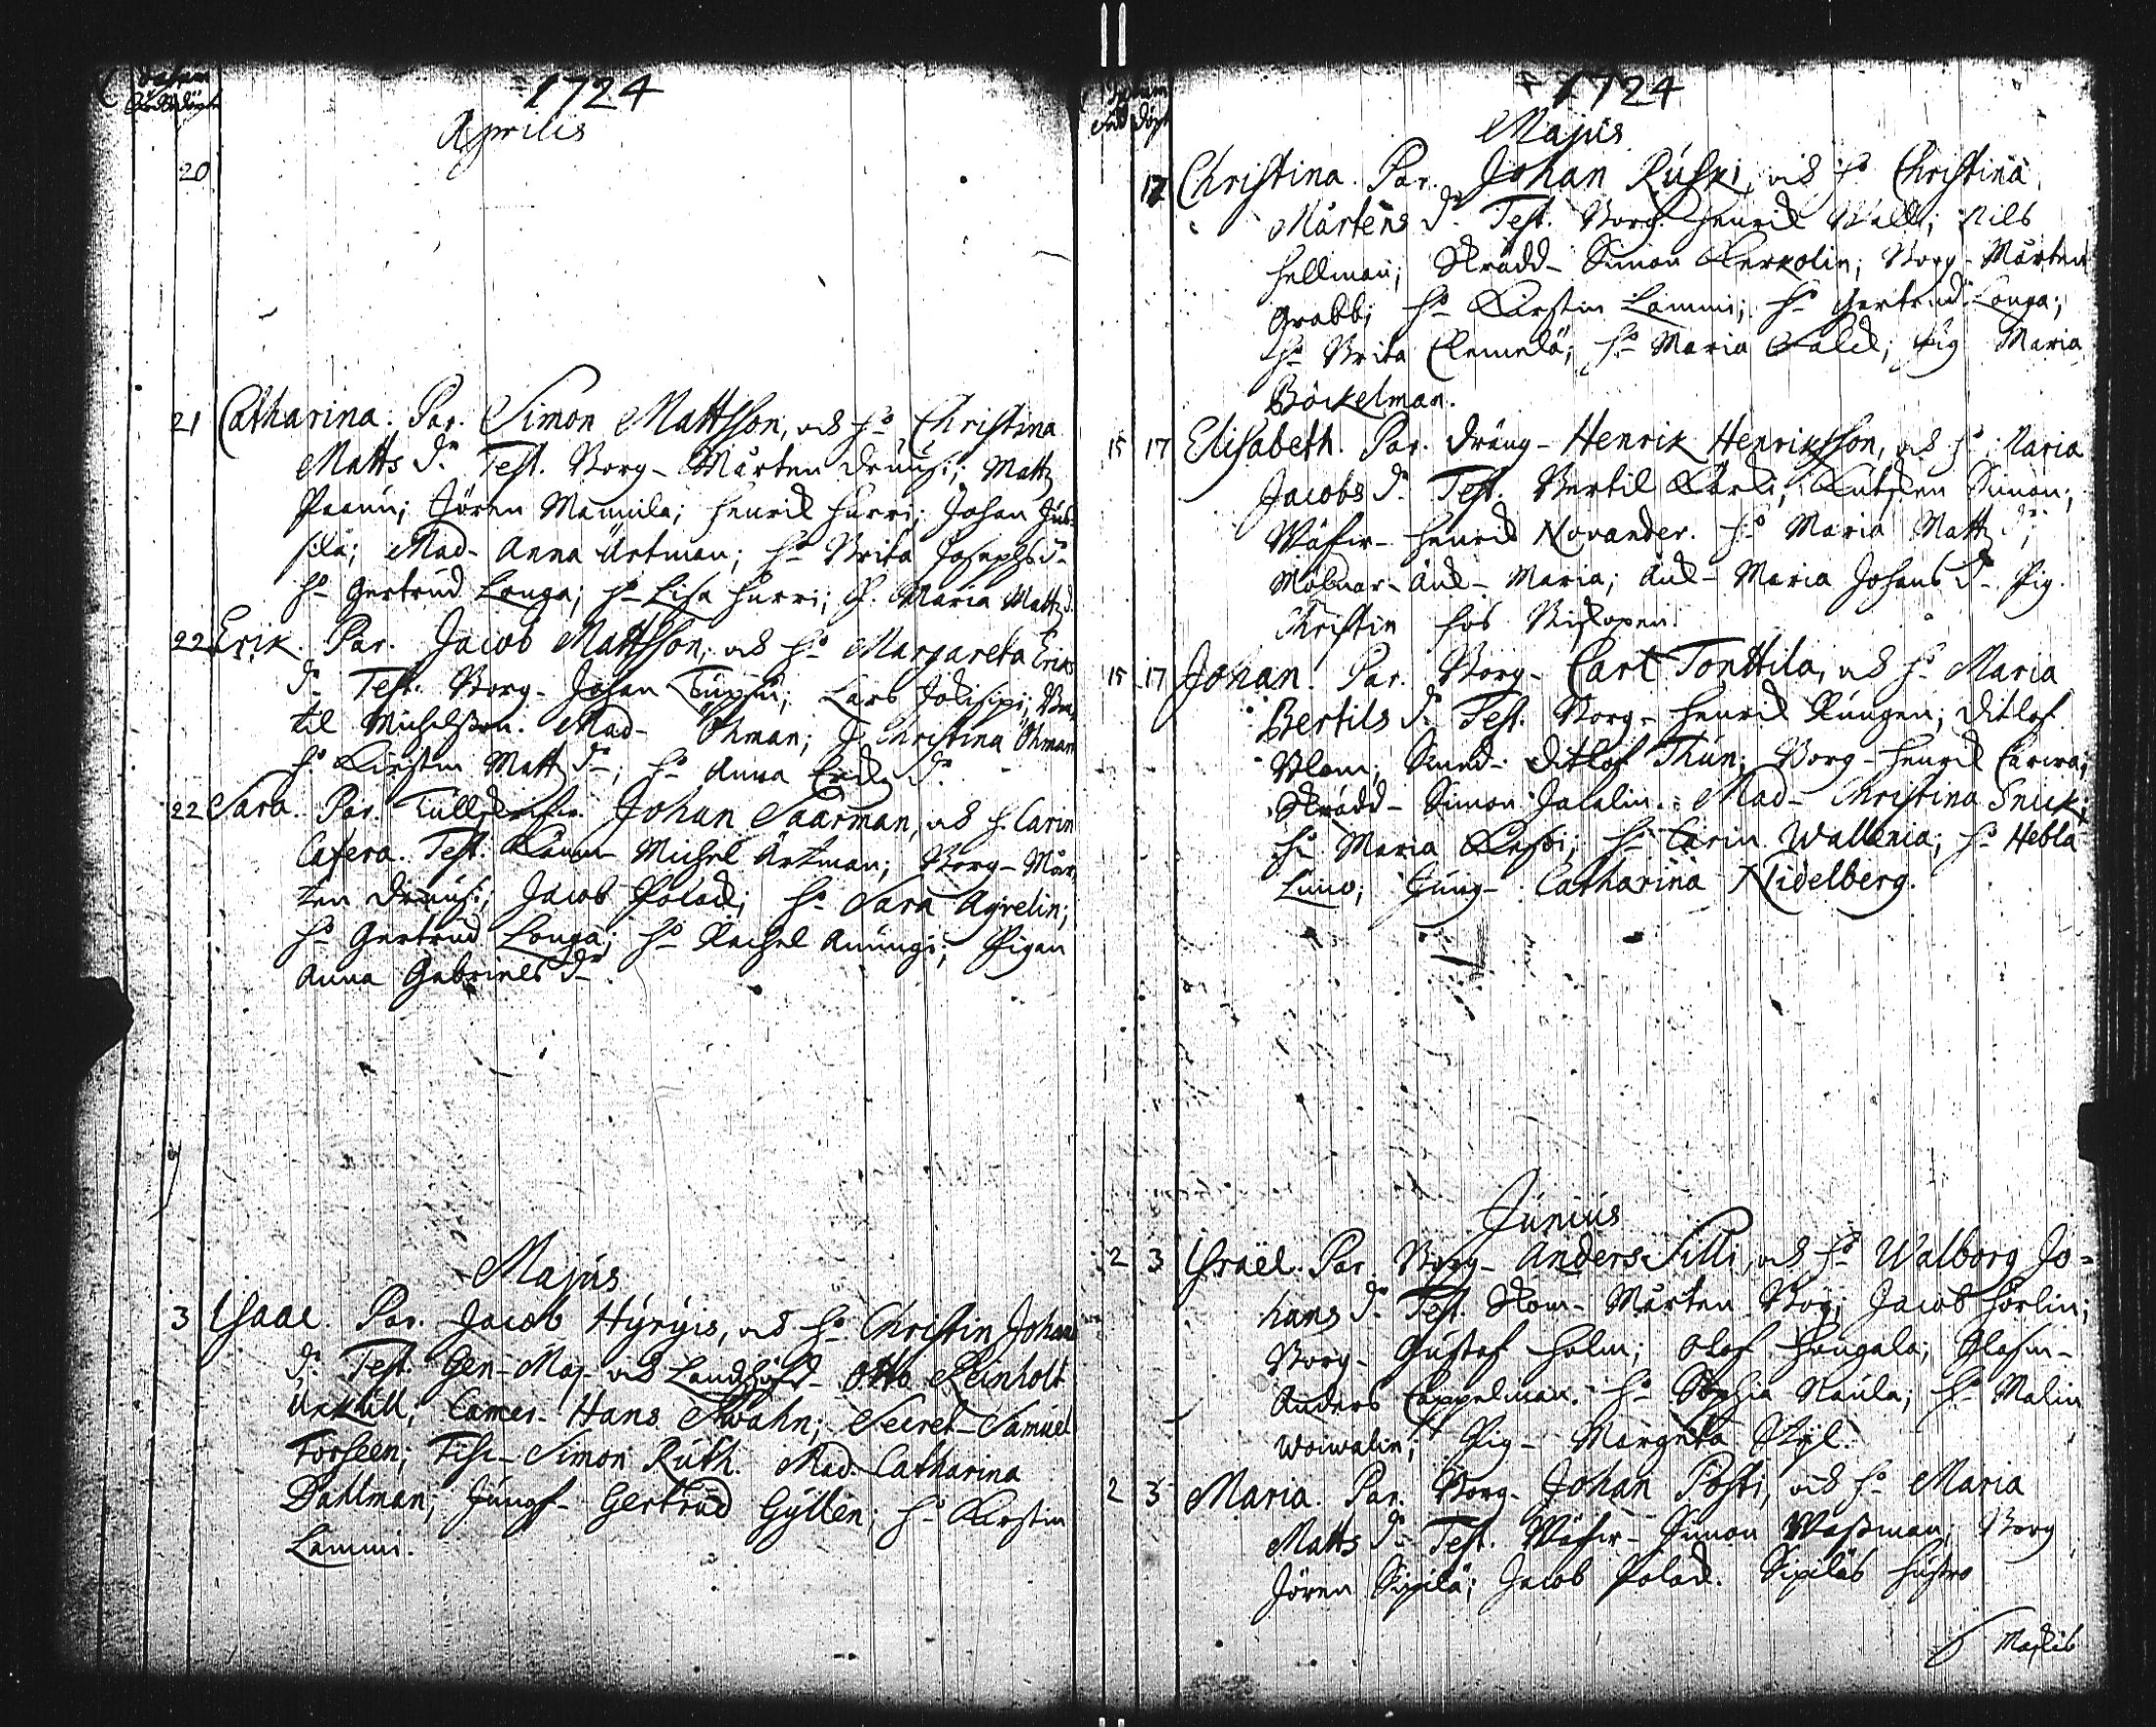 1724
Aprilis
20
21 Catharina. Par. Simon Mattsson, och h:o Christina
Matts d:r Test. Borg- Mårten Druus; Matz
Paanu; Jören Mannila; Henrik Hurri; Johan Jus
sila; Mad- Anna Artman; h:o Brita Josephsd:r
h:o Gertrud Longa; h:o Lisa Hurri; P. Maria Matz d.
22 Erik. Par. Jacob Mattsson, och h:o Margareta Eriks
d:r Test. Borg- Johan Lars Ber
til Michelsson. Mad- Öhman; J. Christina Öhman
h:o Kirstin Matz d:r; h:o Anna d:r
22 Sara. Par. Johan Saarman, och h. Carin
Cafera. Test. Michel Artman; Borg- Mår
ten Druus; Jacob Polack; h:o Sara Agrelin;
h:o Gertrud Longa; h:o Rachel Anungi; Pigan
Anna Gabriels d:r
Majus
3 Isaac. Par. Jacob Hyryis, och h:o Christin Johans
d:r Test. Gen- Maj- och Landshöfd- Otto Reinholt
Uxkull; Camer- Hans Swahn; Secret- Samuel
Forseen; Fisc- Simon Ruth. Mad- Catharina
Dahlman; Jungf- Gertrud Gyllén; h:o Kirstin
Lammi.
1724
Majus
17 Christina. Par. Johan Ruski, och h:o Christina
Mårtens d:r Test. Borg- Henrik Wall; Nils
Hellman; Skrädd- Simon Kerkolin; Borg- Mårten
Grabb; h:o Kirstin Lammi; h:o Gertrud Longa;
h:o Brita Clemelä; h:o Maria Falck; Pig Maria
Böckelman.
15 17 Elisabeth. Par. Dräng- Henrik Henriksson, och h:o Maria
Jacobs d:r Test. Bertil Simon;
Henrik Novander. h:o Maria Matz d:r;
Mölnar- Änk- Maria; Änk- Maria Johans d:r Pig.
Christin hos Biskopen.
15 17 Johan. Par. Borg- Carl Tonttila, och h:o Maria
Bertils d:r Test. Borg- Henrik Kungen; Ditlof
Blom; Smed- Ditlof Thun; Borg- Henrik
Skrädd- Simon Jacolin. Mad- Christina Snick;
h:o Maria h:o Carin Wallenia; h:o Hebla
Jung- Catharina Nidelberg.
Junius
2 3 Israël. Par. Borg- Anders Silli, och h:o Walborg Jo=
hans d:r Test. Skom- Mårten Boy; Jacob Hörlin;
Borg- Gustaf Holm; Olof Hongala; Glasm-
Anders Cappelman. h:o Sophia Naula; h:o Malin
Woiwalin; Pig- Margreta
2 3 Maria. Par. Borg- Johan Posti, och h:o Maria
Matts d:r Test. Simon Wassman; Borg
Jören Sipilä; Jacob Polack. Sipiläs hustro